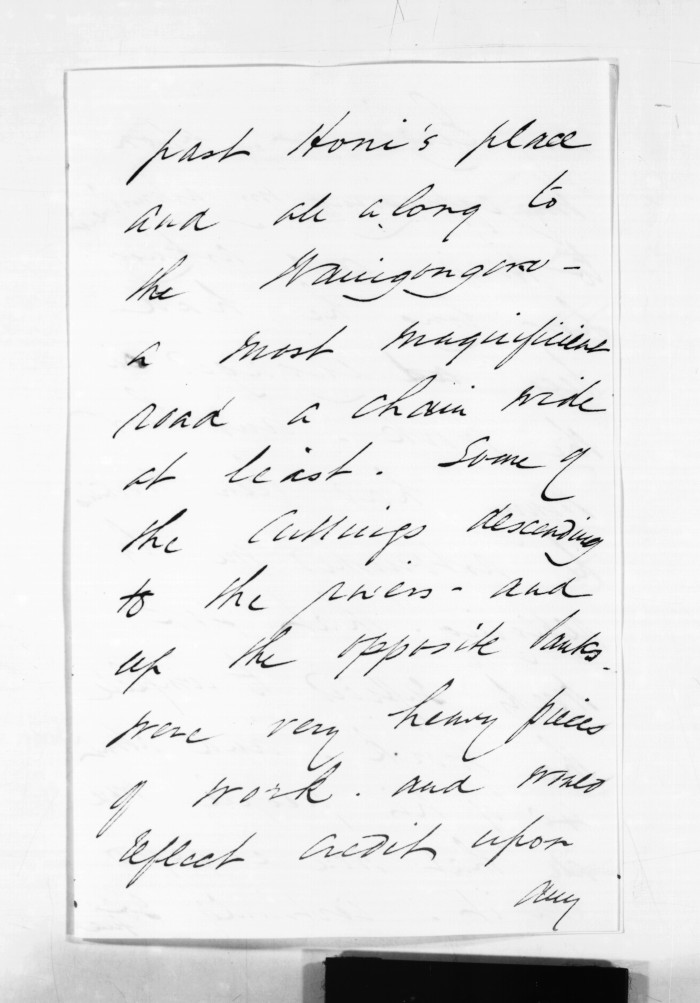 past Honi's place
and all along to
the Waingongoro -
a most magnificent
road a chain wide
at least. Some of
the Cuttings descending
to the rivers - and
up the opposite banks -
were very heavy pieces
of work. and would
reflect credit upon
any